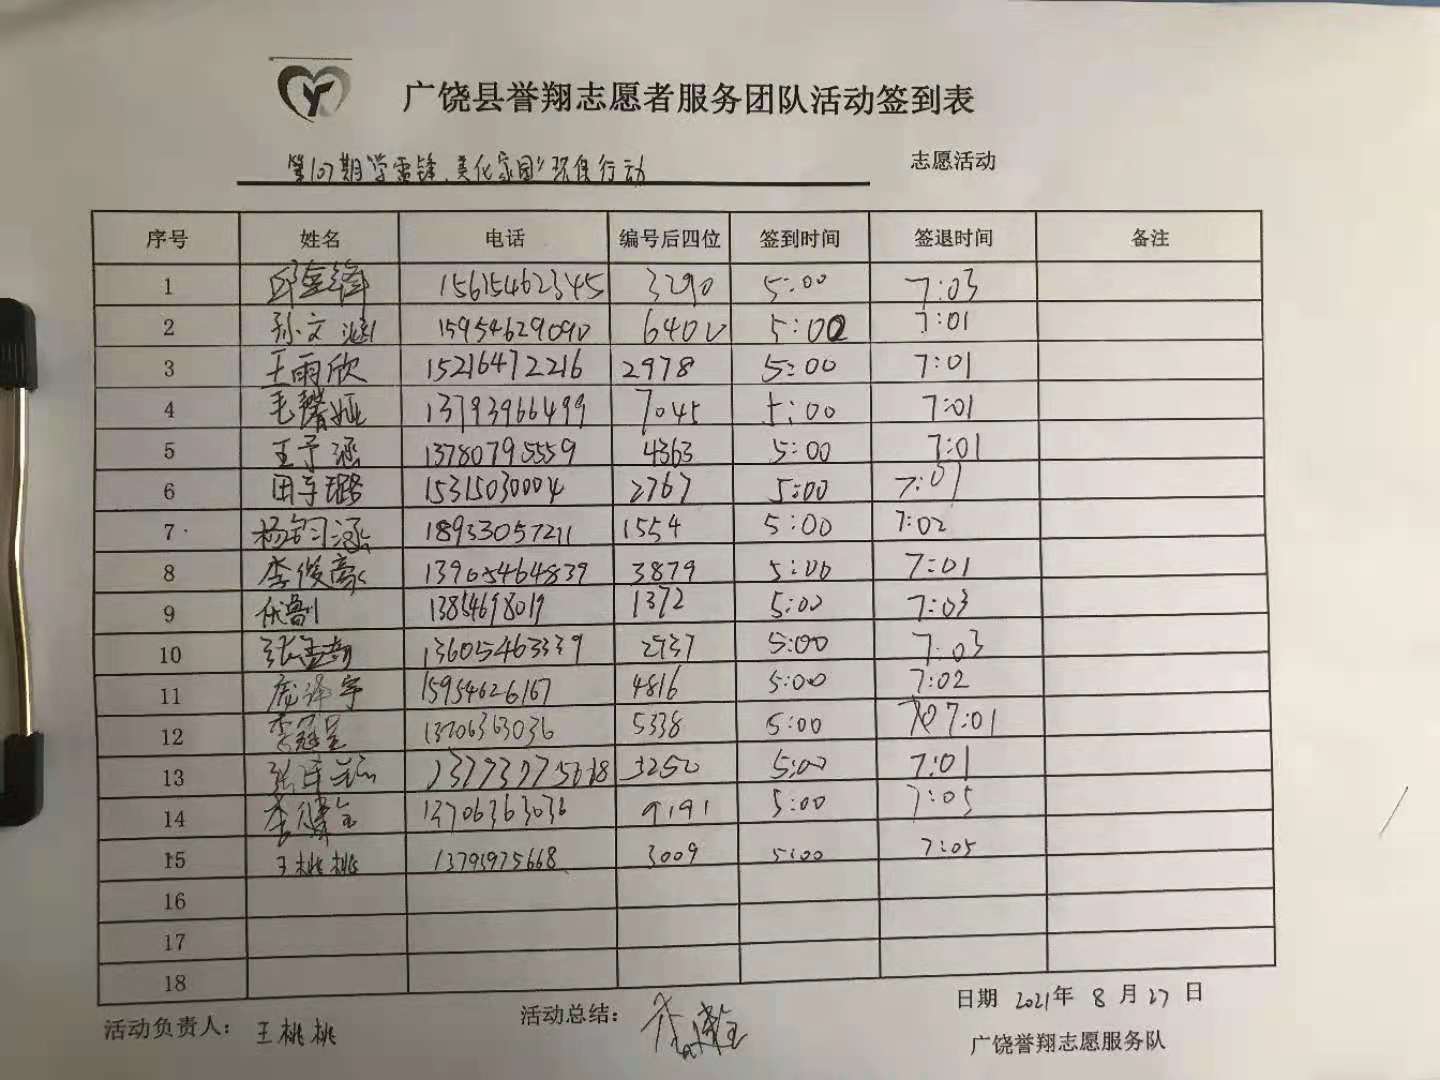 广饶县誉翔志愿者服务团队活动签到表
第107期"学雷锋、美化家园"环保行动 志愿活动
序号 姓名 电话 编号后四位 签到时间 签退时间 备注
1 15615462345 3290 5:00 7:03
2 孙文涵 15954629090 6400 5:00 7:01
3 王雨欣 15216472216 2978 5:00 7:01
4 毛馨娅 13793966499 7045 5:00 7:01
5 王予涵 13780795559 4363 5:00 7:01
6 田宇璐 15315030004 2767 5:00 7:01
7 杨钧涵 18953057211 1554 5:00 7:02
8 李俊豪 13905464839 3879 5:00 7:01
9 13854698019 1372 5:00 7:03
10 张孟奇 13605463339 2937 5:00 7:03
11 庞泽宇 15954626167 4816 5:00 7:02
12 李冠呈 13706363036 5338 5:00 7:01
13 3250 5:00 7:01
14 13706363036 9191 5:00 7:05
15 王桃桃 13793975668 3009 5:00 7:05
16
17
18
活动负责人：王桃桃 活动总结： 日期 2021年 8 月 27 日
广饶誉翔志愿服务队